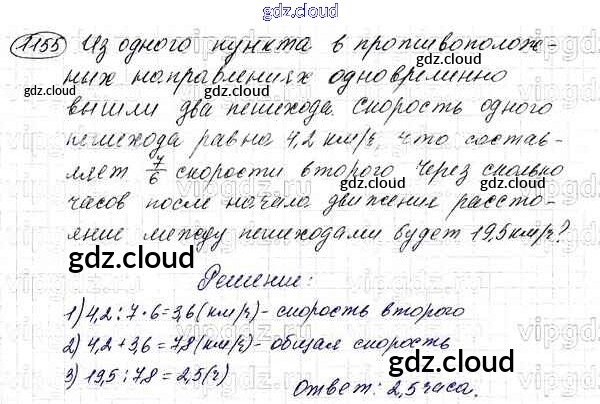 gdz.cloud
1155 Из одного пункта в противополож-
ных направлениях одновременно
вышли два пешехода. Скорость одного
gdz.cloud
пешехода равна 4,2 км/ч, что состав-
ляет 7/6 скорости второго. Через сколько
часов после начала движения рассто-
яние между пешеходами будет 19,5 км/ч?
gdz.cloud
Решение:
1) 4,2 : 7 · 6 = 3,6 (км/ч) - скорость второго
2) 4,2 + 3,6 = 7,8 (км/ч) - общая скорость
3) 19,5 : 7,8 = 2,5 (ч)
gdz.cloud
Ответ: 2,5 часа.
gdz.cloud